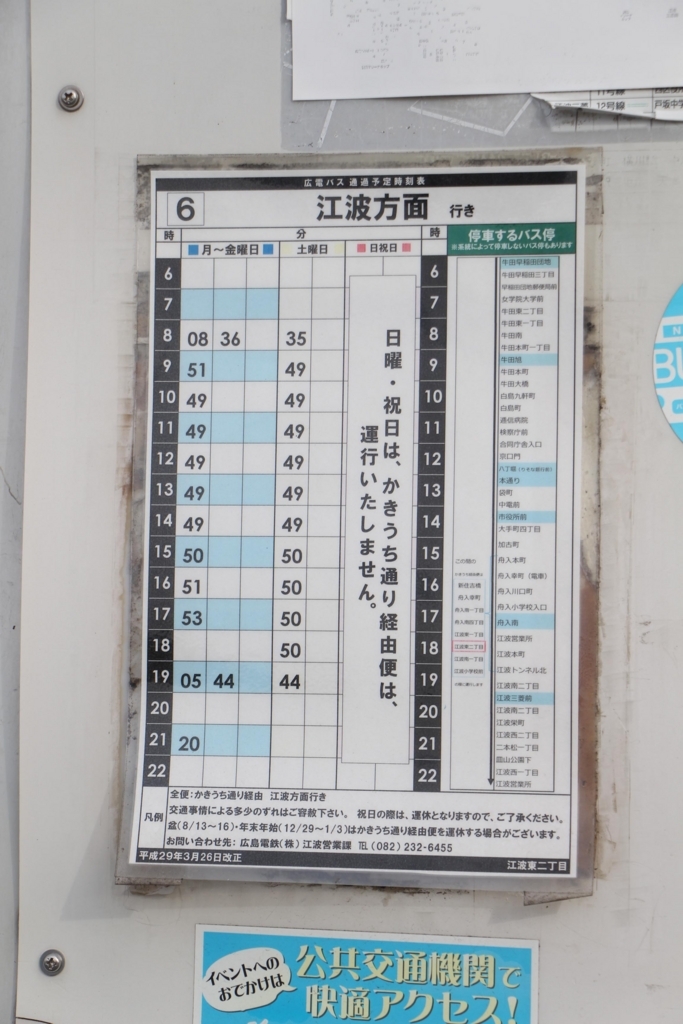 11号線
12号線 戸坂中学
広電バス 通過予定時刻表
6 江波方面 行き
時 分 時 停車するバス停
※系統によって停車しないバス停もあります
月～金曜日 土曜日 日祝日
6 6
7 7
8 08 36 35 8
9 51 49 9
10 49 49 10
11 49 49 11
12 49 49 12
13 49 49 13
14 49 49 14
15 50 50 15
16 51 50 16
17 53 50 17
18 50 18
19 05 44 44 19
20 20
21 20 21
22 22
日曜・祝日は、かきうち通り経由便は、
運行いたしません。
牛田早稲田団地
牛田早稲田三丁目
早稲田団地郵便局前
女学院大学前
牛田東二丁目
牛田東一丁目
牛田南
牛田本町一丁目
牛田旭
牛田本町
牛田大橋
白島九軒町
白島町
逓信病院
検察庁前
合同庁舎入口
京口門
本通り
袋町
中電前
市役所前
大手町四丁目
加古町
舟入本町
舟入幸町（電車）
舟入川口町
舟入小学校入口
舟入南
江波営業所
江波本町
江波トンネル北
江波南二丁目
江波三菱前
江波南二丁目
江波栄町
江波西二丁目
二本松一丁目
皿山公園下
江波西一丁目
江波営業所
この間の
新住吉橋
舟入幸町
舟入南一丁目
舟入南四丁目
江波東一丁目
江波東二丁目
江波南一丁目
江波小学校前
凡例
全便：かきうち通り経由 江波方面行き
交通事情による多少のずれはご容赦下さい。 祝日の際は、運休となりますので、ご了承ください。
盆(8/13～16)・年末年始(12/29～1/3)はかきうち通り経由便を運休する場合がございます。
お問い合わせ先：広島電鉄(株) 江波営業課 TEL(082) 232-6455
平成29年3月26日改正 江波東二丁目
イベントへの
おでかけは
公共交通機関で
快適アクセス！